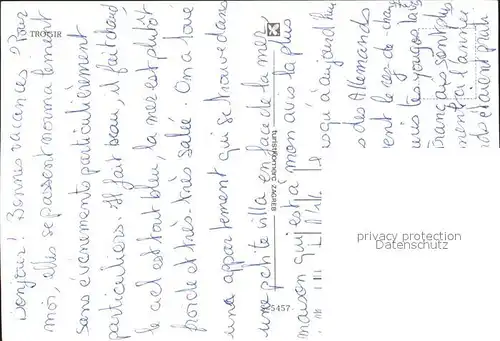 TROGIR
Bonjour! Bonnes vacances? Pour
moi, elles se passent normalement
sans événements particulièrement
particuliers. Il fait beau, il fait chaud
le ciel est tout bleu, la mer est plutôt
froide et très-très salée. On a loué
una appartement qui se trouve dans
une petite villa en face de la mer
maison qui est à mon avis la plus
squ'à aujourd'hui
s des Allemands
vent le rez-de-chau
uis les yougos
Français sont plus
l'année
étaient
turistkomerc ZAGREB
5457
privacy protection
Datenschutz